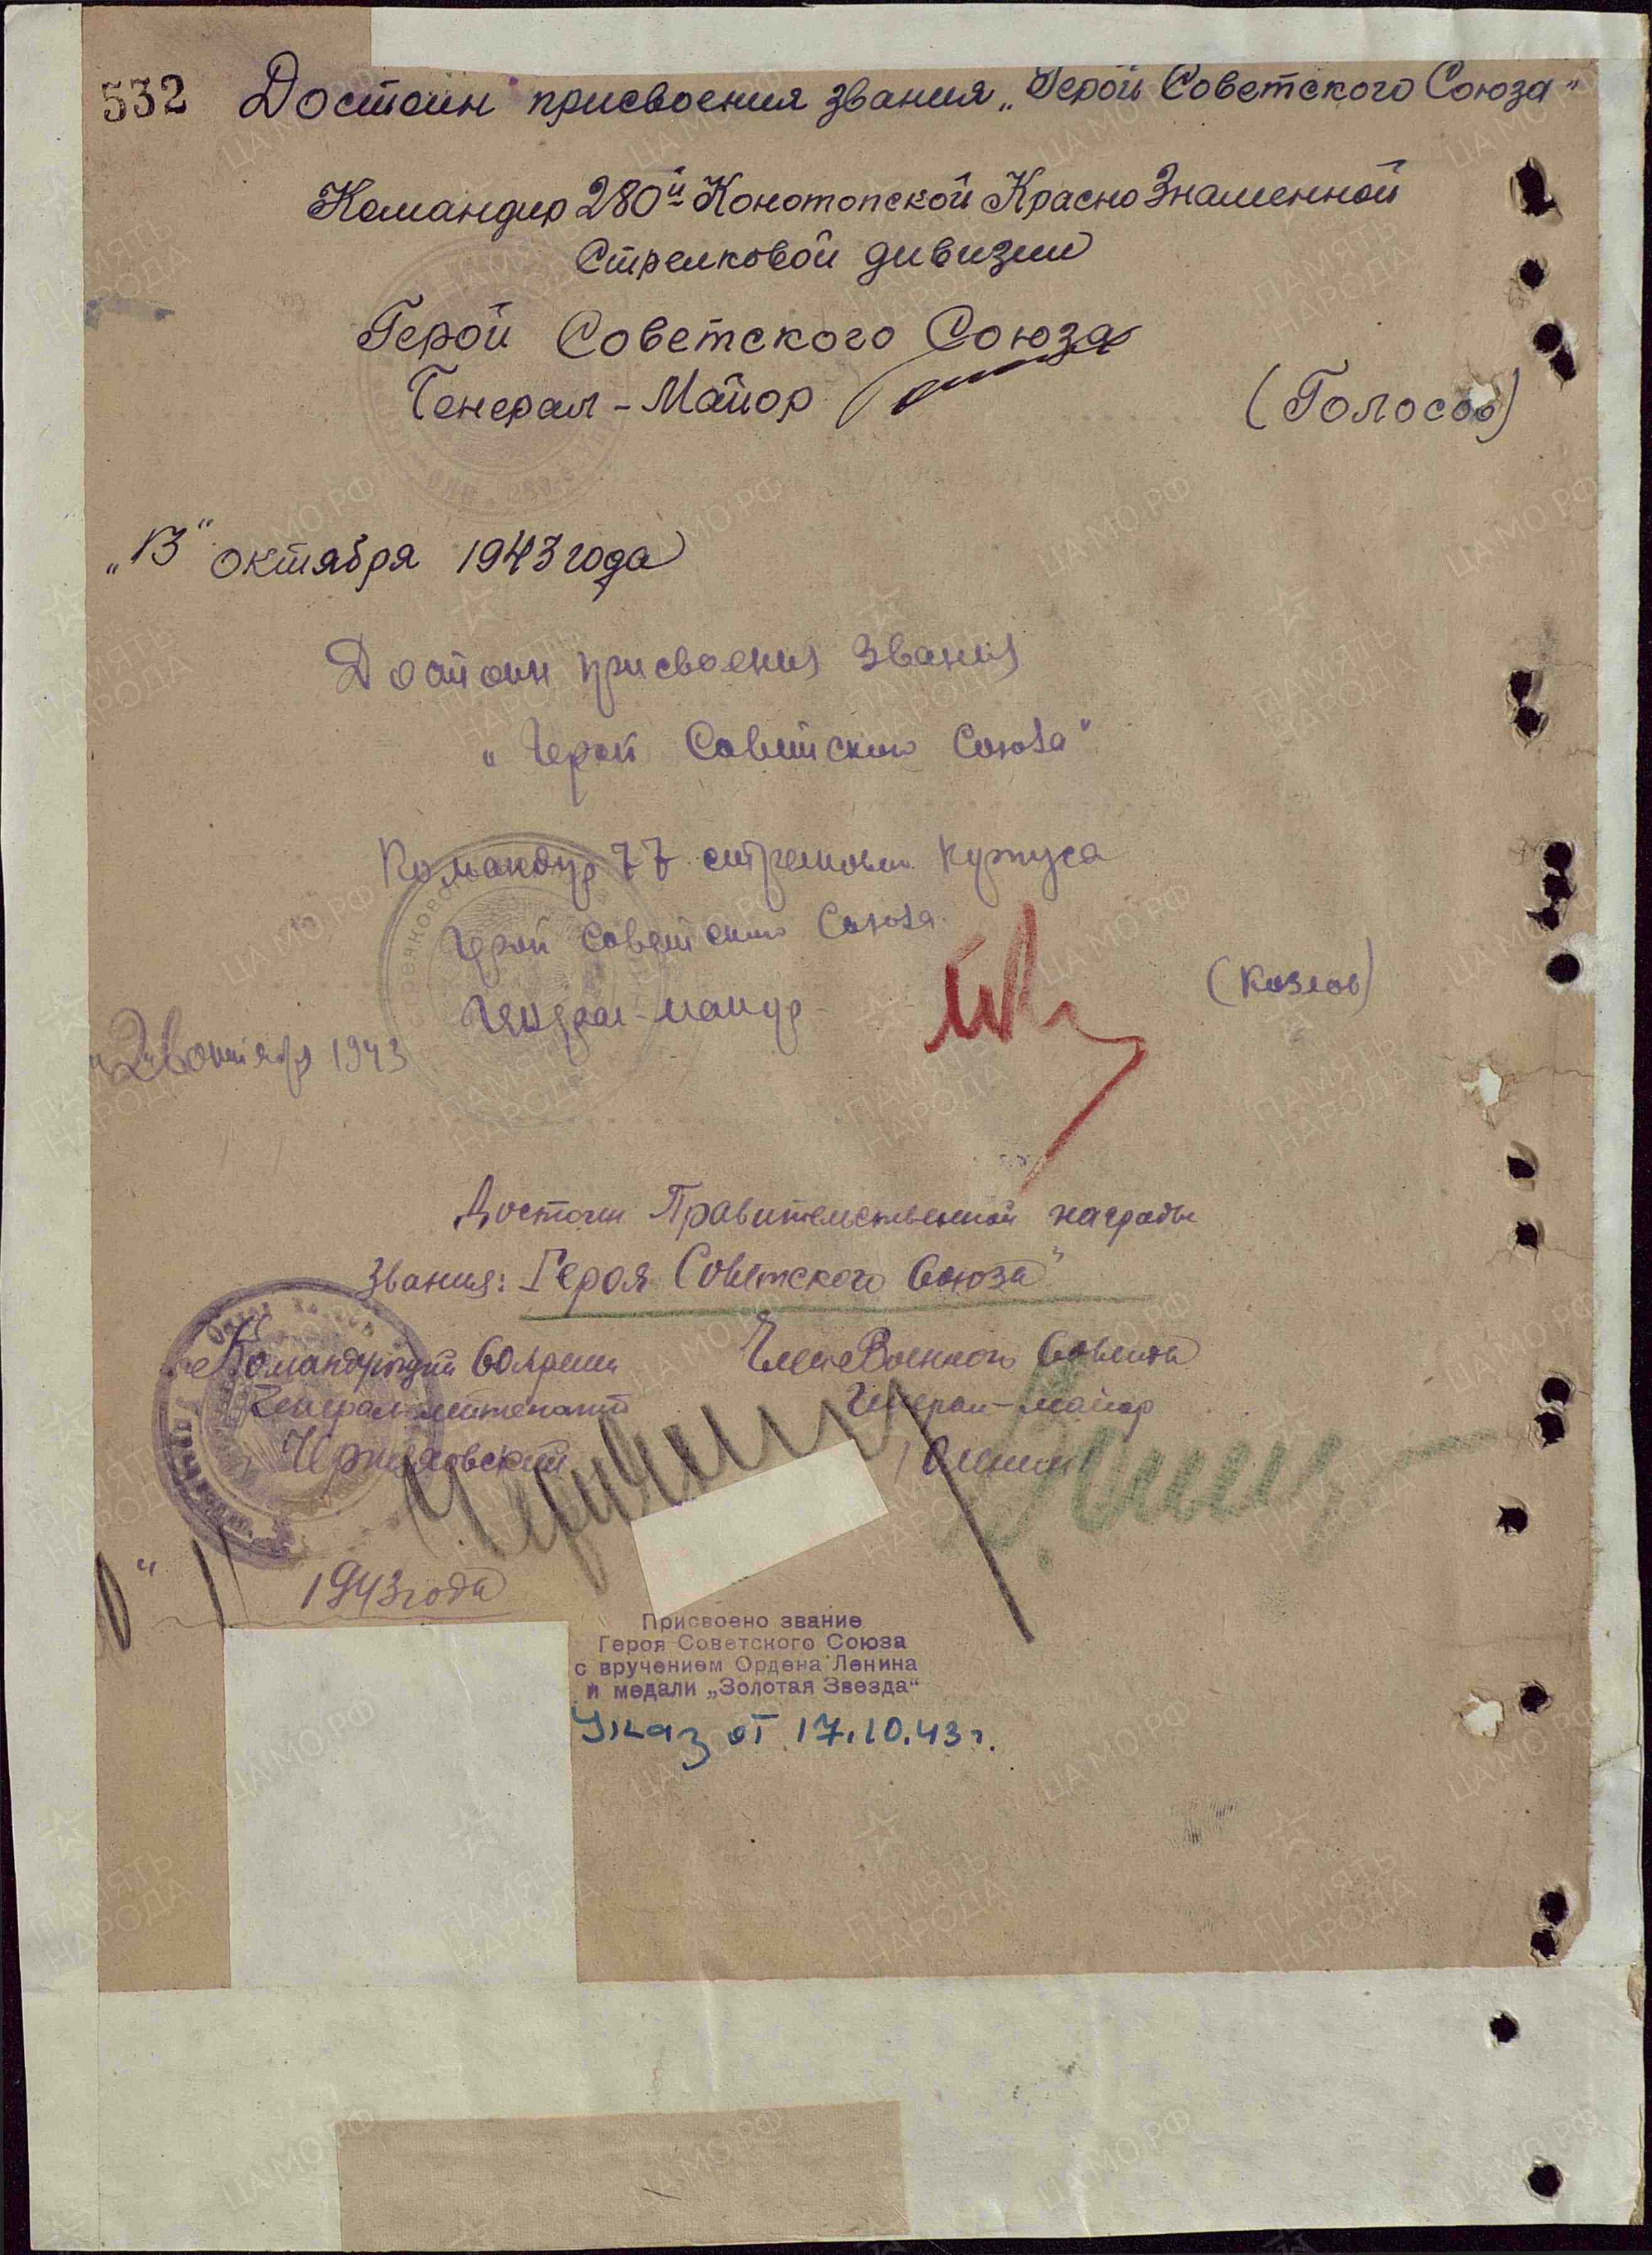 532 Достоин присвоения звания „Герой Советского Союза“
Командир 280й Конотопской Краснознаменной
Стрелковой дивизии
Герой Советского Союза
Генерал-Майор (Голосов)
„13“ октября 1943 года
Достоин присвоения звания
„Герой Советского Союза“
Командир 77 стрелкового корпуса
Герой Советского Союза
Генерал-майор (Козлов)
октября 1943
Достоин Правительственной награды
звания: Героя Советского Союза"
Командующий 60 Армии Член Военного Совета
Генерал-лейтенант Генерал-майор
Черняховский Оленин
1943 года
Присвоено звание
Героя Советского Союза
с вручением Ордена Ленина
и медали „Золотая Звезда“
Указ от 17.10.43г.
ПАМЯТЬ НАРОДА
ЦА МО.РФ